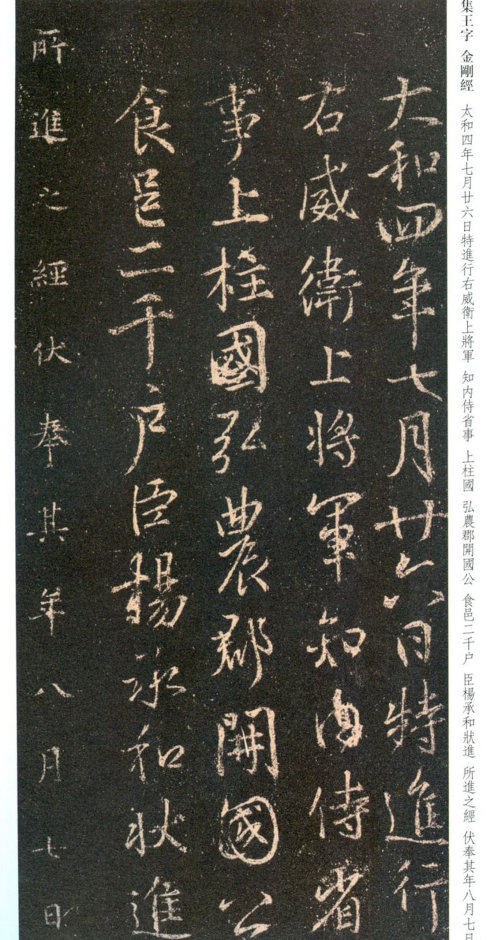 集王字 金剛經 太和四年七月廿六日特進行右威衛上將軍 知内侍省事 上柱國 弘農郡開國公 食邑二千户 臣楊承和狀進 所進之經 伏奉其年八月七日
大和四年七月廿六日特進行
右威衛上將軍知内侍省
事上柱國弘農郡開國公
食邑二千户臣楊承和狀進
所進之經伏奉其年八月七日